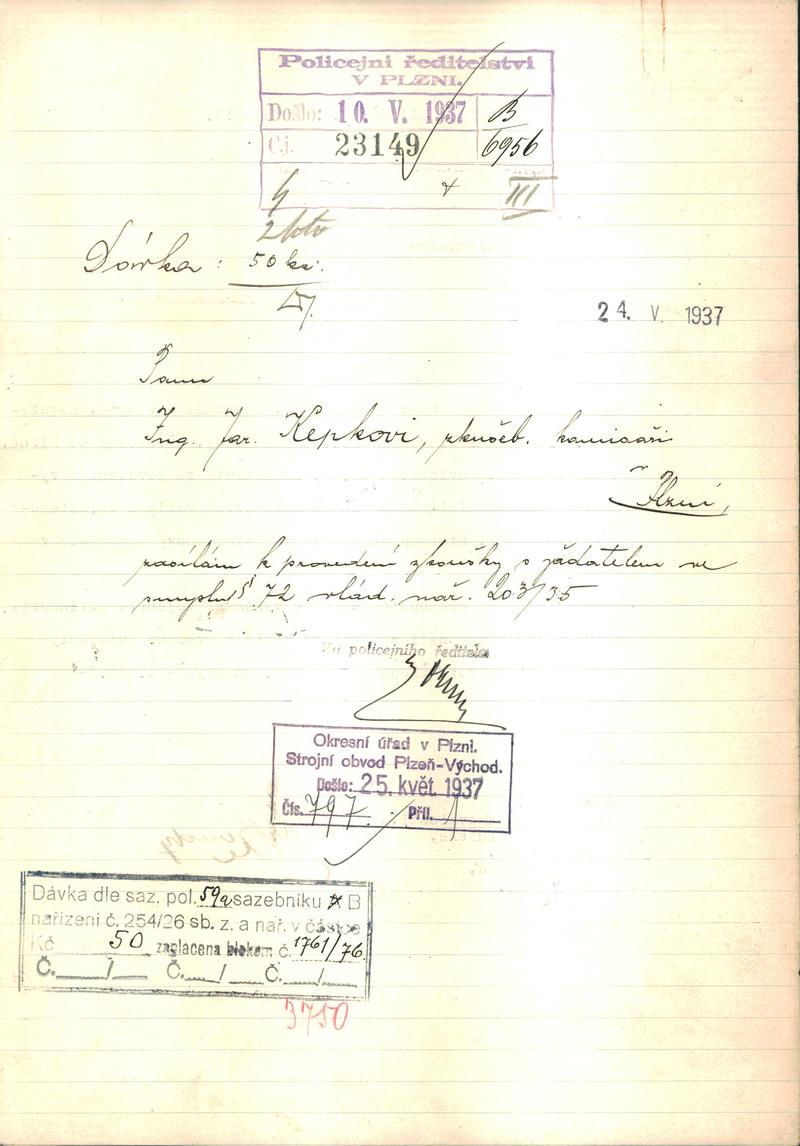 Policejní ředitelství
V PLZNI.
Došlo: 10. V. 1937 B
Č.j. 23149 6956
III
Dávka: 50 kč.
24. V. 1937
Panu
Ing. Jar. Kepkovi, zkušeb. komisaři
Plzni,
zasílám k provedení zkoušky s žadatelem ve
smyslu § 72 vlád. nař. 203/35
Za policejního ředitele
Okresní úřad v Plzni.
Strojní obvod Plzeň-Východ.
Došlo: 25. květ. 1937
Čís. 797. Příl. 1
Dávka dle saz. pol. 59a sazebníku B
nařízení č. 254/26 sb. z. a nař. v částce
Kč 50 zaplacena blokem č. 1761/76
Č. / Č. / Č. /
3750